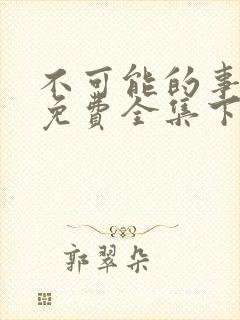 不可能的事
免费全集下
郭翠朵